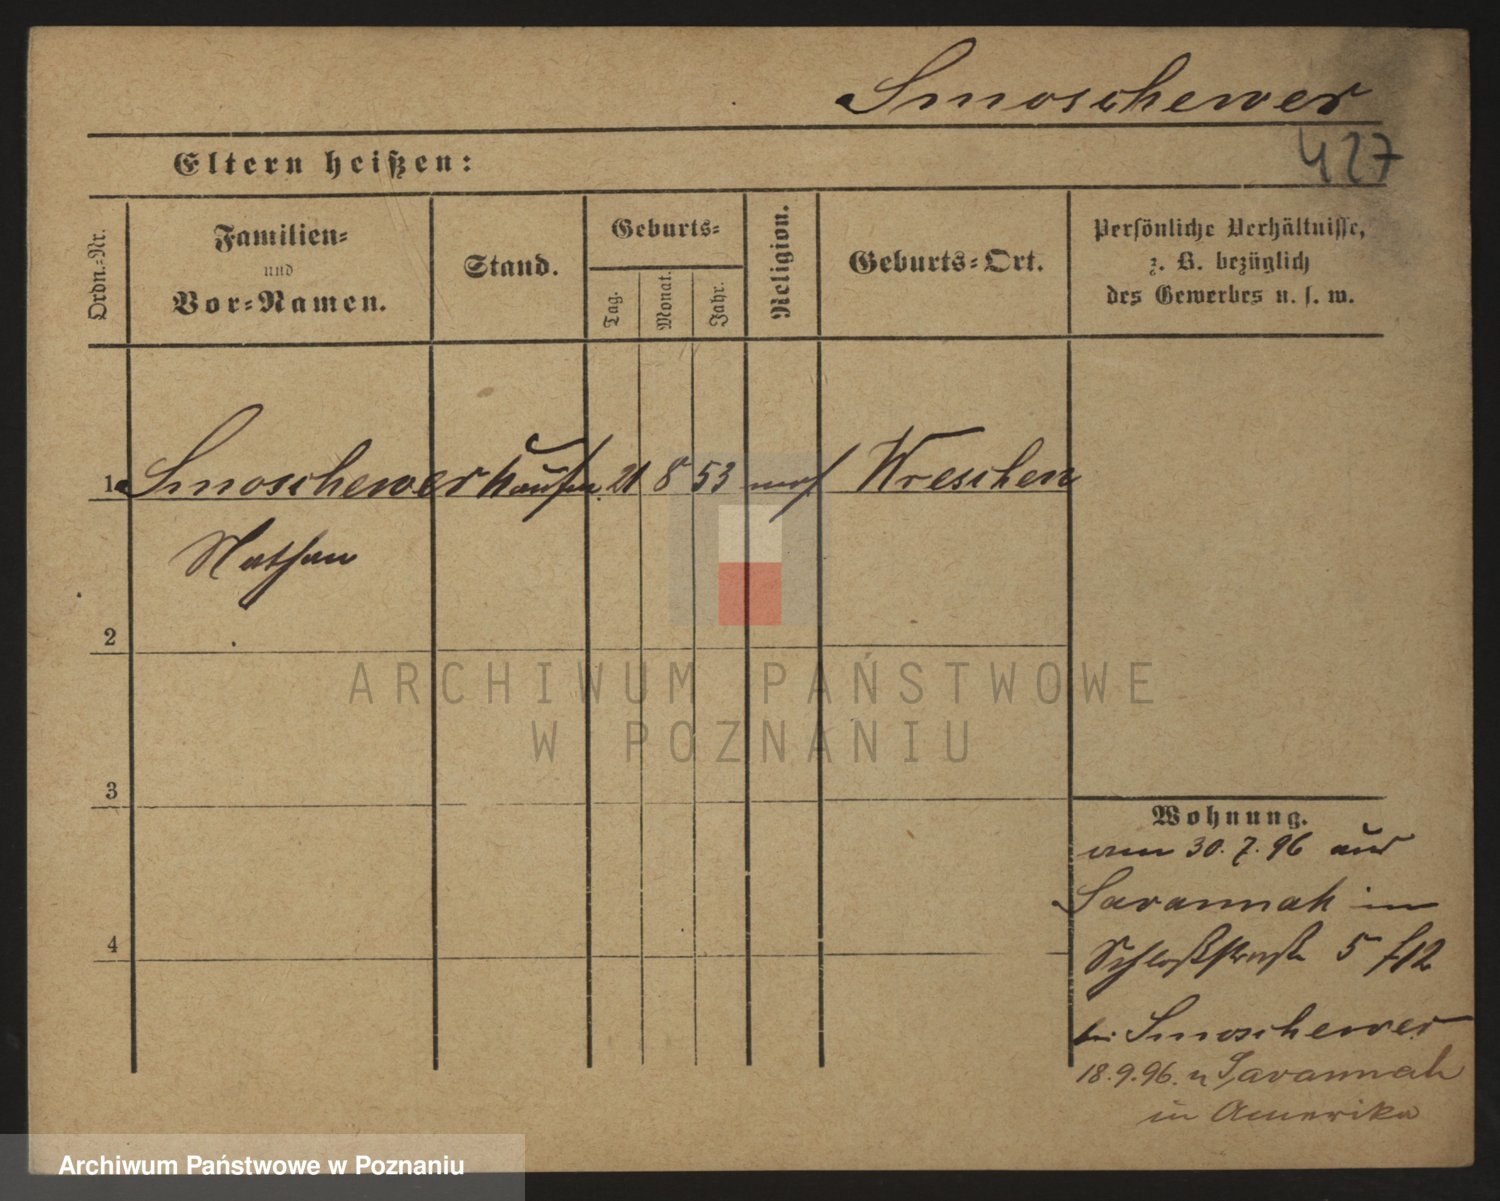 Smoschewer
427
Eltern heißen:
Ordn.-Nr.
Familien-
und
Vor-Namen.
Stand.
Geburts-
Tag.
Monat.
Jahr.
Religion.
Geburts-Ort.
Persönliche Verhältnisse,
z. B. bezüglich
des Gewerbes u. s. w.
1 Smoschewer Kaufm. 21 8 53 mos Wreschen
Nathan
2
3
4
Wohnung.
am 30. 7. 96 aus
Savannah in
Schloßstraße 5
bei Smoschewer
18. 9. 96. n Savannah
in Amerika
ARCHIWUM PAŃSTWOWE
W POZNANIU
Archiwum Państwowe w Poznaniu